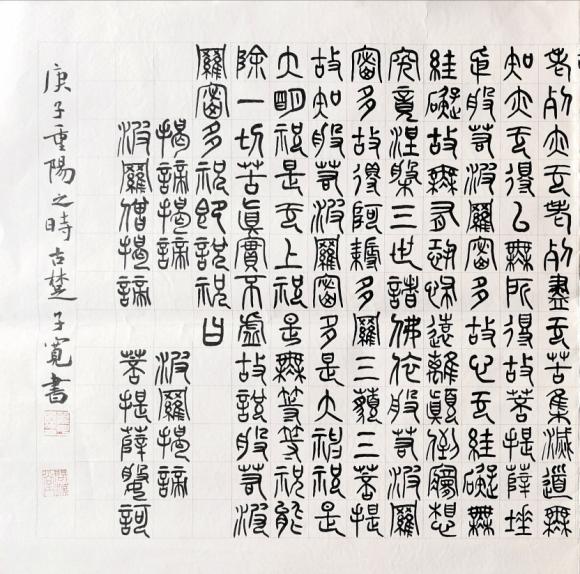 老死亦无老死盡无苦集滅道無
知亦无得以無所得故菩提薩埵
般若波羅蜜多故心无絓礙無
絓礙故無有恐怖遠離顛倒夢想
究竟涅槃三世諸佛依般若波羅
蜜多故得阿耨多羅三藐三菩提
故知般若波羅蜜多是大神祝是
大明祝是无上祝是無等等祝能
除一切苦眞實不虛故說般若波
羅蜜多祝即說祝曰
揭諦揭諦 波羅揭諦
波羅僧揭諦 菩提薩婆訶
庚子重陽之時古楚子寬書